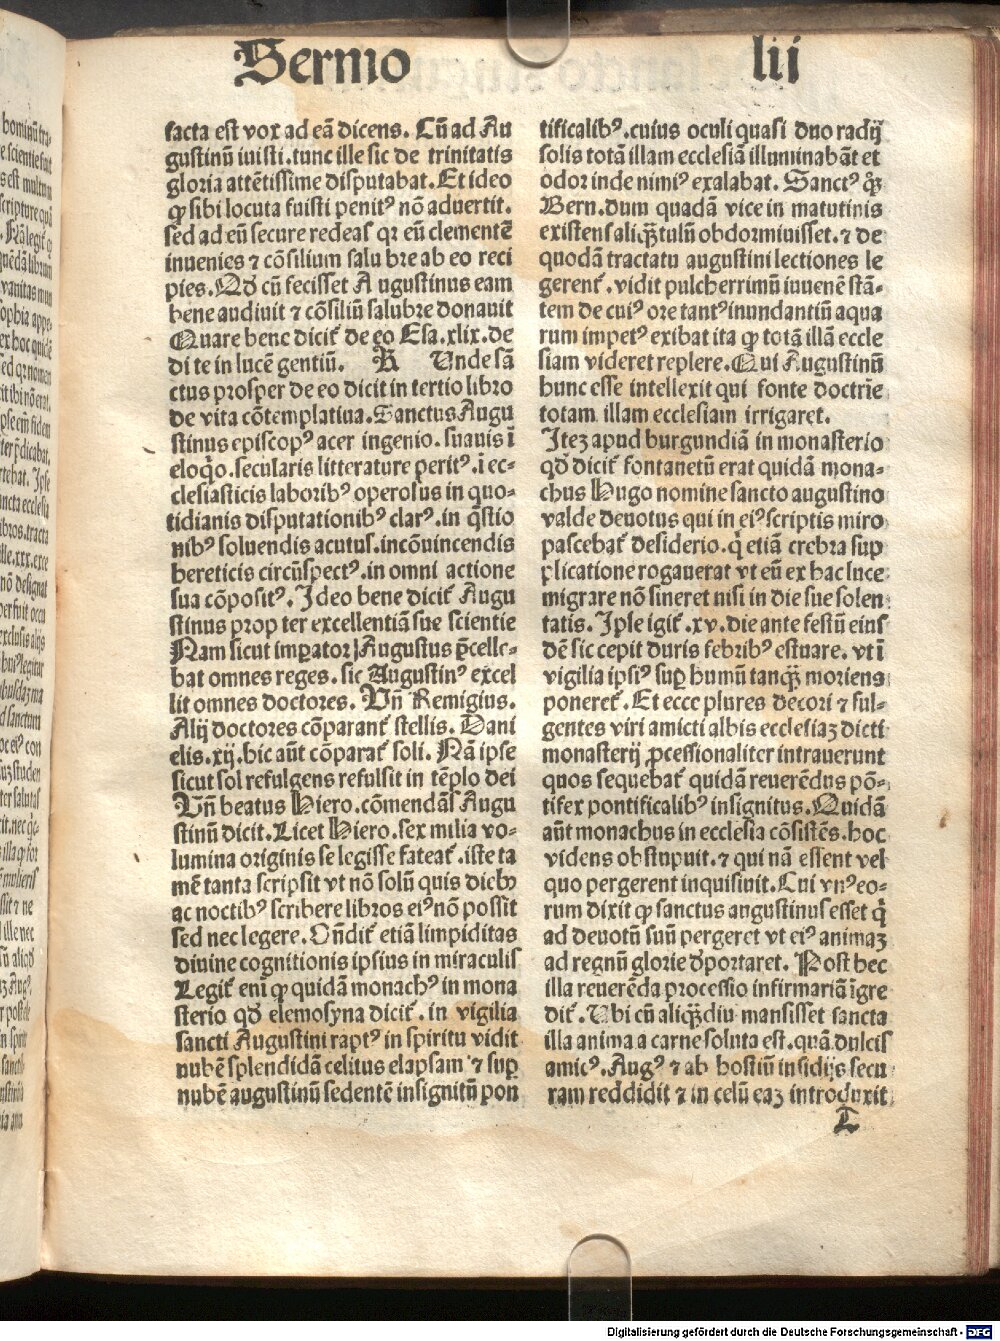 Sermo lii
facta est vox ad eā dicens. Cū ad Au
gustinū iuisti. tunc ille sic de trinitatis
gloria attētissime disputabat. Et ideo
ꝙ sibi locuta fuisti penitꝰ nō aduertit.
sed ad eū secure redeas qꝛ eū clementē
inuenies ⁊ cōsilium salu bre ab eo reci
pies. Qd̄ cū fecisset Augustinus eam
bene audiuit ⁊ cōsiliū salubre donauit
Quare bene dicit̄ de eo Esa. xlix. de
di te in lucē gentiū. K Unde sā
ctus prosper de eo dicit in tertio libro
de vita cōtemplatiua. Sanctus Augu
stinus episcopꝰ acer ingenio. suauis ī
eloq̄o. secularis litterature peritꝰ. ī ec-
clesiasticis laboribꝰ operosus in quo-
tidianis disputationibꝰ clarꝰ. in q̄stio
nibꝰ soluendis acutus. incōuincendis
hereticis circūspectꝰ. in omni actione
sua cōpositꝰ. Ideo bene dicit̄ Augu
stinus prop ter excellentiā sue scientie
Nam sicut imꝑator Augustus p̄celle-
bat omnes reges. sic Augustinꝰ excel
lit omnes doctores. Vn̄ Remigius.
Alij doctores cōparant̄ stellis. Dani
elis. xij. hic aūt cōparat̄ soli. Nā ipse
sicut sol refulgens refulsit in tēplo dei
Vn̄ beatus Hiero. cōmendās Augu
stinū dicit. Licet Hiero. sex milia vo-
lumina originis se legisse fateat̄. iste ta
mē tanta scripsit vt nō solū quis diebꝰ
ac noctibꝰ scribere libros eiꝰ nō possit
sed nec legere. On̄dit̄ etiā limpiditas
diuine cognitionis ipsius in miraculis
Legit̄ eni ꝙ quidā monachꝰ in mona
sterio qd̄ elemosyna dicit̄. in vigilia
sancti Augustini raptꝰ in spiritu vidit
nubē splendidā celitus elapsam ⁊ suꝑ
nubē augustinū sedentē insignitū pon
tificalibꝰ. cuius oculi quasi duo radij
solis totā illam ecclesiā illuminabāt et
odor inde nimiꝰ exalabat. Sanctꝰ q̄ꝫ
Bern. dum quadā vice in matutinis
existens aliq̄ꝫtulū obdormiuisset. ⁊ de
quodā tractatu augustini lectiones le
gerent̄. vidit pulcherrimū iuuenē stā-
tem de cuiꝰ ore tantꝰ inundantiū aqua
rum impetꝰ exibat ita ꝙ totā illā eccle
siam videret replere. Qui Augustinū
hunc esse intellexit qui fonte doctrīe
totam illam ecclesiam irrigaret.
Iteꝫ apud burgundiā in monasterio
qd̄ dicit̄ fontanetū erat quidā mona-
chus Hugo nomine sancto augustino
valde deuotus qui in eiꝰ scriptis miro
pascebat̄ desiderio. q̇ etiā crebra sup
plicatione rogauerat vt eū ex hac luce
migrare nō sineret nisi in die sue solen
tatis. Ipse igit̄. xv. die ante festū eius
dē sic cepit duris febribꝰ estuare. vt ī
vigilia ipsiꝰ suꝑ humū tanq̄ꝫ moriens
poneret̄. Et ecce plures decori ⁊ ful-
gentes viri amicti albis ecclesiaꝫ dicti
monasterij ꝓcessionaliter intrauerunt
quos sequebat̄ quidā reuerēdus pō-
tifex pontificalibꝰ insignitus. Quidā
aūt monachus in ecclesia cōsistēs. hoc
videns obstupuit. ⁊ qui nā essent vel
quo pergerent inquisiuit. Cui vnꝰ eo-
rum dixit ꝙ sanctus augustinus esset q̇
ad deuotū suū pergeret vt eiꝰ animaꝫ
ad regnū glorie dportaret. Post hec
illa reuerēda processio infirmariā īgre
dit̄. Ubi cū aliq̄ꝫdiu mansisset sancta
illa anima a carne soluta est. quā dulcis
amicꝰ. Augꝰ ⁊ ab hostiū insidijs secu
ram reddidit ⁊ in celū eaꝫ introduxit
L
Digitalisierung gefördert durch die Deutsche Forschungsgemeinschaft - DFG